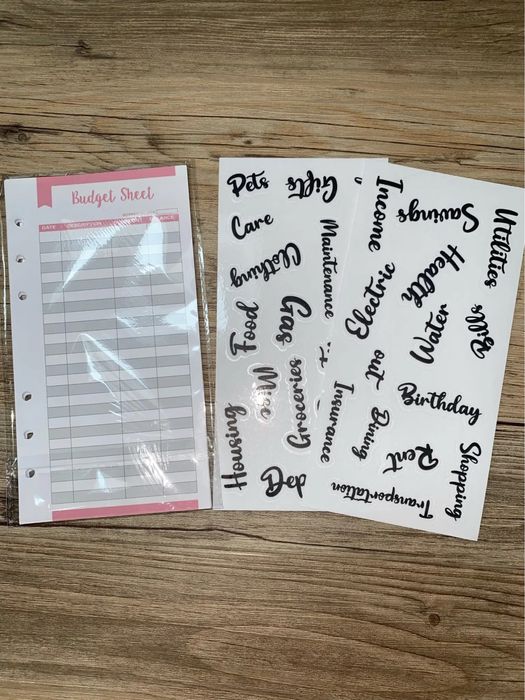 Budget Sheet
DATE DESCRIPTION
Pets
Gifts
Care
Maintenance
Clothing
Food
Gas
Misc
Groceries
Insurance
Housing
Dep
Income
Savings
Utilities
Health
Electric
Water
Bills
out
Birthday
Dining
Rent
Shopping
Transportation